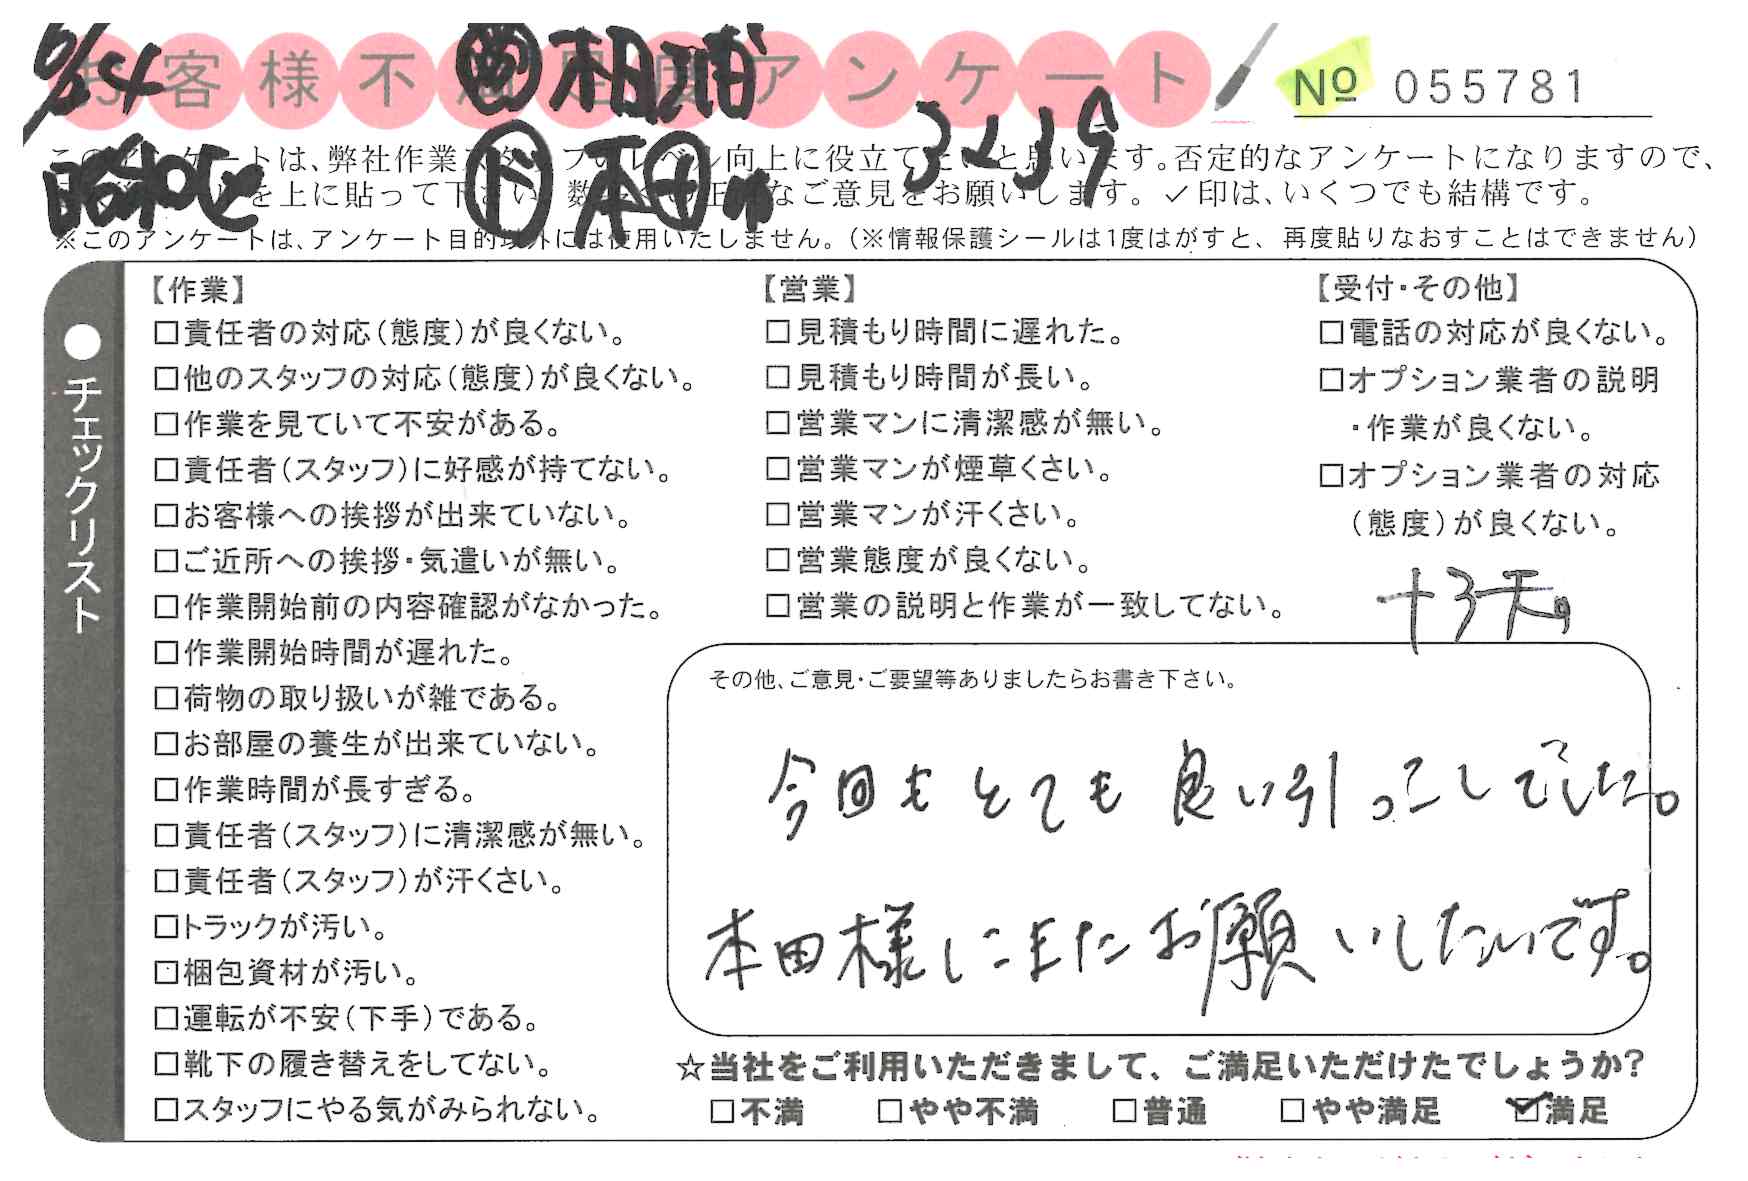 お客様不満足度アンケート
6/24
営 相浦
№ 055781
昭和
ド 本田
3239
このアンケートは、弊社作業スタッフのレベル向上に役立てたいと思います。否定的なアンケートになりますので、
を上に貼って下さい。数多くの正直なご意見をお願いします。✓印は、いくつでも結構です。
※このアンケートは、アンケート目的以外には使用いたしません。(※情報保護シールは1度はがすと、再度貼りなおすことはできません)
●チェックリスト
【作業】
□責任者の対応(態度)が良くない。
□他のスタッフの対応(態度)が良くない。
□作業を見ていて不安がある。
□責任者(スタッフ)に好感が持てない。
□お客様への挨拶が出来ていない。
□ご近所への挨拶・気遣いが無い。
□作業開始前の内容確認がなかった。
□作業開始時間が遅れた。
□荷物の取り扱いが雑である。
□お部屋の養生が出来ていない。
□作業時間が長すぎる。
□責任者(スタッフ)に清潔感が無い。
□責任者(スタッフ)が汗くさい。
□トラックが汚い。
□梱包資材が汚い。
□運転が不安(下手)である。
□靴下の履き替えをしてない。
□スタッフにやる気がみられない。
【営業】
□見積もり時間に遅れた。
□見積もり時間が長い。
□営業マンに清潔感が無い。
□営業マンが煙草くさい。
□営業マンが汗くさい。
□営業態度が良くない。
□営業の説明と作業が一致してない。
【受付・その他】
□電話の対応が良くない。
□オプション業者の説明
・作業が良くない。
□オプション業者の対応
(態度)が良くない。
その他、ご意見・ご要望等ありましたらお書き下さい。
今回もとても良い引っこしでした。
本田様にまたお願いしたいです。
☆当社をご利用いただきまして、ご満足いただけたでしょうか?
□不満 □やや不満 □普通 □やや満足 ☑満足